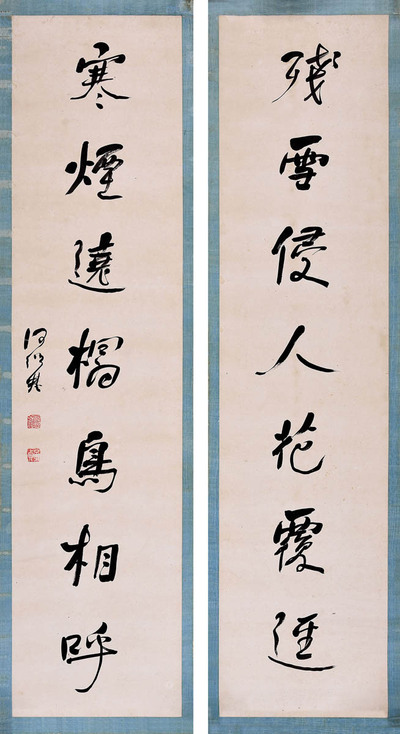 殘雪侵人花覆逕
寒煙遶鳥相呼
何紹基